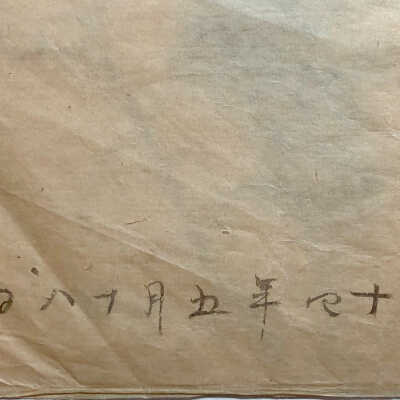 十四年五月十八日